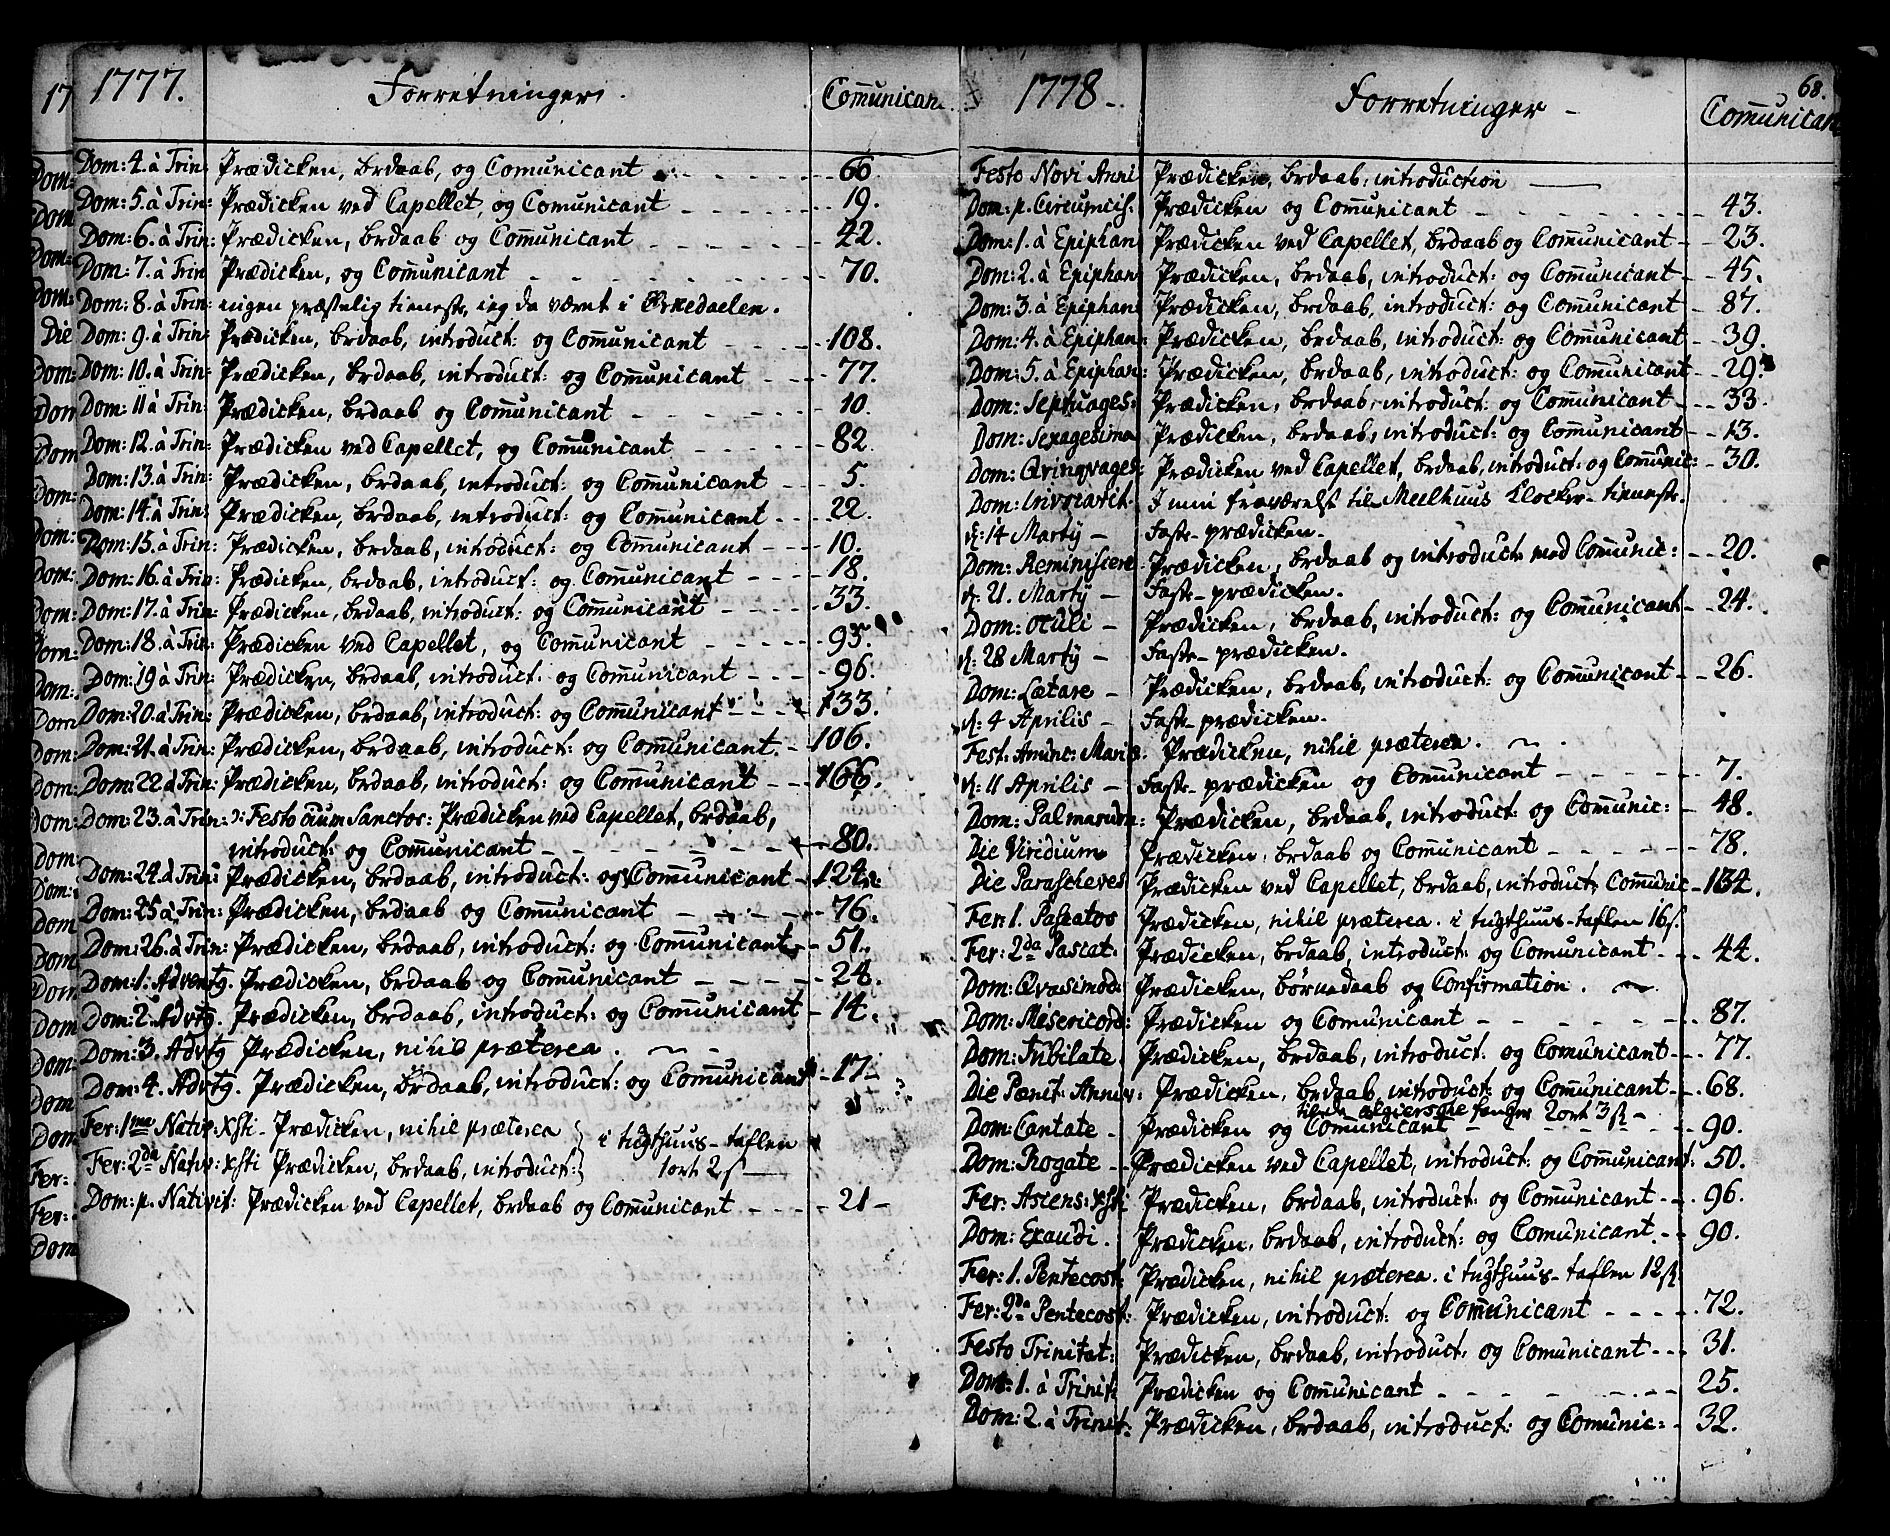 1777. Forretninger. Communican
Dom: 4. à Trin: Prædicken, brdaab, og Comunicant - - - - - 66
Dom: 5. à Trin: Prædicken ved Capellet, og Comunicant - - - - - 19.
Dom: 6. à Trin: Prædicken, brdaab og Comunicant - - - - - 42.
Dom: 7. à Trin Prædicken, og Comunicant - - - - - - - 70.
Dom: 8. à Trin: ingen præstelig tieneste, ieg da været i Orkedaelen.
Dom: 9. à Trin: Prædicken, brdaab, introduct: og Comunicant - - - - 108.
Dom: 10. à Trin: Prædicken, brdaab, introduct: og Comunicant - - - - 77.
Dom: 11 à Trin: Prædicken, brdaab og Comunicant - - - - - - 10.
Dom: 12. à Trin: Prædicken ved Capellet, og Comunicant - - - - - 82
Dom: 13. à Trin: Prædicken, brdaab, introduct: og Comunicant - - - 5.
Dom: 14. à Trin: Prædicken, brdaab, introduct: og Comunicant - - - 22
Dom: 15. à Trin: Prædicken, brdaab, introduct: og Comunicant - - - 10.
Dom: 16. à Trin: Prædicken, brdaab, introduct: og Comunicant - - - - 18.
Dom: 17. à Trin: Prædicken, brdaab, introduct: og Comunicant - - - - 33.
Dom: 18. à Trin: Prædicken ved Capellet, og Comunicant - - - - - 93
Dom: 19 à Trin: Prædicken, brdaab, introduct. og Comunicant - - - - 96.
Dom: 20. à Trin: Prædicken, brdaab, introduct: og Comunicant - - - - 133.
Dom: 21. à Trin: Prædicken, brdaab, introduct: og Comunicant. - 106.
Dom: 22 à Trin: Prædicken, brdaab, introduct: og Comunicant - - - 166.
Dom: 23. à Trin: ɔ: Festo Oium Sanctor: Prædicken ved Capellet, brdaab,
introduct: og Comunicant - - - - - - - 80.
Dom: 24. à Trin: Prædicken, brdaab, introduct: og Comunicant - 124.
Dom: 25 à Trin: Prædicken, brdaab og Comunicant - - - - - 76.
Dom: 26. à Trin: Prædicken, brdaab, introduct: og Comunicant - 51.
Dom: 1. Adventg. Prædicken, brdaab og Comunicant - - - - - 28.
Dom: 2. Advtg. Prædicken, brdaab, introduct: og Comunicant - 14.
Dom: 3. Advtg Prædicken, nihil præterea.
Dom: 4. Advtg. Prædicken, brdaab, introduct: og Comunicant - 17 -
Fer: 1ma Nativ: Xsti - Prædicken, nihil præterea } i tugthuus-taflen
Fer: 2da Nativ: Xsti Prædicken, brdaab, introduct: } 1 ort 2 ß
Dom: p. Nativit: Prædicken ved Capellet, brdaab og Comunicant - - - - 21 -
1778. Forretninger - 68.
Comunican
Festo Novi Anni Prædicken, brdaab, introduction
Dom: p. Circumcis: Prædicken og Comunicant - - - - - - - 43.
Dom: 1. à Epiphan Prædicken ved Capellet, brdaab og Comunicant - - 23.
Dom: 2. à Epiphan Prædicken, brdaab, introduct: og Comunicant - - 45.
Dom: 3. à Epiphan Prædicken, brdaab, introduct: og Comunicant - 87.
Dom: 4. à Epiphan: Prædicken, brdaab, introduct: og Comunicant - - 39.
Dom: 5. à Epiphan: Prædicken, brdaab, introduct: og Comunicant - - 29.
Dom: Septuages: Prædicken, brdaab, introduct: og Comunicant - - 33
Dom: Sexagesima Prædicken, brdaab, introduct: og Comunicant - - 13.
Dom: Qvinqvages: Prædicken ved Capellet, brdaab, introduct: og Comunic: - 30.
Dom: Invocavit. I min fraværelse til Meelhuus Klocker-tieneste.
d: 14 Martÿ - Faste-prædicken.
Dom: Reminiscere Prædicken, brdaab og introduct med Comunic: - - 20.
d: 21. Martÿ - Faste-prædicken.
Dom: Oculi - Prædicken, brdaab, introduct: og Comunicant - - 24.
d: 28 Martÿ - Faste-prædicken.
Dom: Lætare - Prædicken, brdaab, introduct: og Comunicant - - 26.
d: 4 Aprilis - Faste-prædicken.
Fest: Anunc: Mariæ. Prædicken, nihil præterea.
d: 11 Aprilis - Faste-prædicken og Comunicant - - - - - 7.
Dom: Palmarum: Prædicken, brdaab, introduct: og Comunic: - 48.
Die Viridium Prædicken, brdaab og Comunicant - - - - - 78.
Die Parascheves Prædicken ved Capellet, brdaab, introduct, Comunic - 134.
Fer: 1. Paschatos Prædicken, nihil præterea. i tugthuus-taflen 16 ß.
Fer: 2da Pascat. Prædicken, brdaab, introduct: og Comunicant - - 44.
Dom: Qvasimod: Prædicken, børnedaab og Confirmation.
Dom: Misericord: Prædicken og Comunicant - - - - - - - 87.
Dom: Jubilate. Prædicken, brdaab, introduct: og Comunicant - - - 77.
Die Pænit. Anniv: Prædicken, brdaab, introduct: og Comunicant - - - 68.
til de algierske fanger 2 ort 3 ß -
Dom: Cantate - Prædicken og Comunicant - - - - - 90.
Dom: Rogate - Prædicken ved Capellet, introduct: og Comunicant: 50.
Fer: Ascens: Xsti Prædicken, brdaab, introduct: og Comunicant - - 96.
Dom: Exaudi. Prædicken, brdaab, introduct: og Comunicant. - - 90.
Fer: 1. Pentecost: Prædicken, nihil præterea. i tugthuus-taflen 12 ß.
Fer: 2da Pentecost: Prædicken, introduct: og Comunicant - - - - 72.
Festo Trinitat: Prædicken, brdaab, introduct: og Comunicant - - - 31.
Dom: 1. à Trinit: Prædicken og Comunicant - - - - - - - 25.
Dom: 2. à Trinit: Prædicken, brdaab, introduct: og Comunic: - - 32.